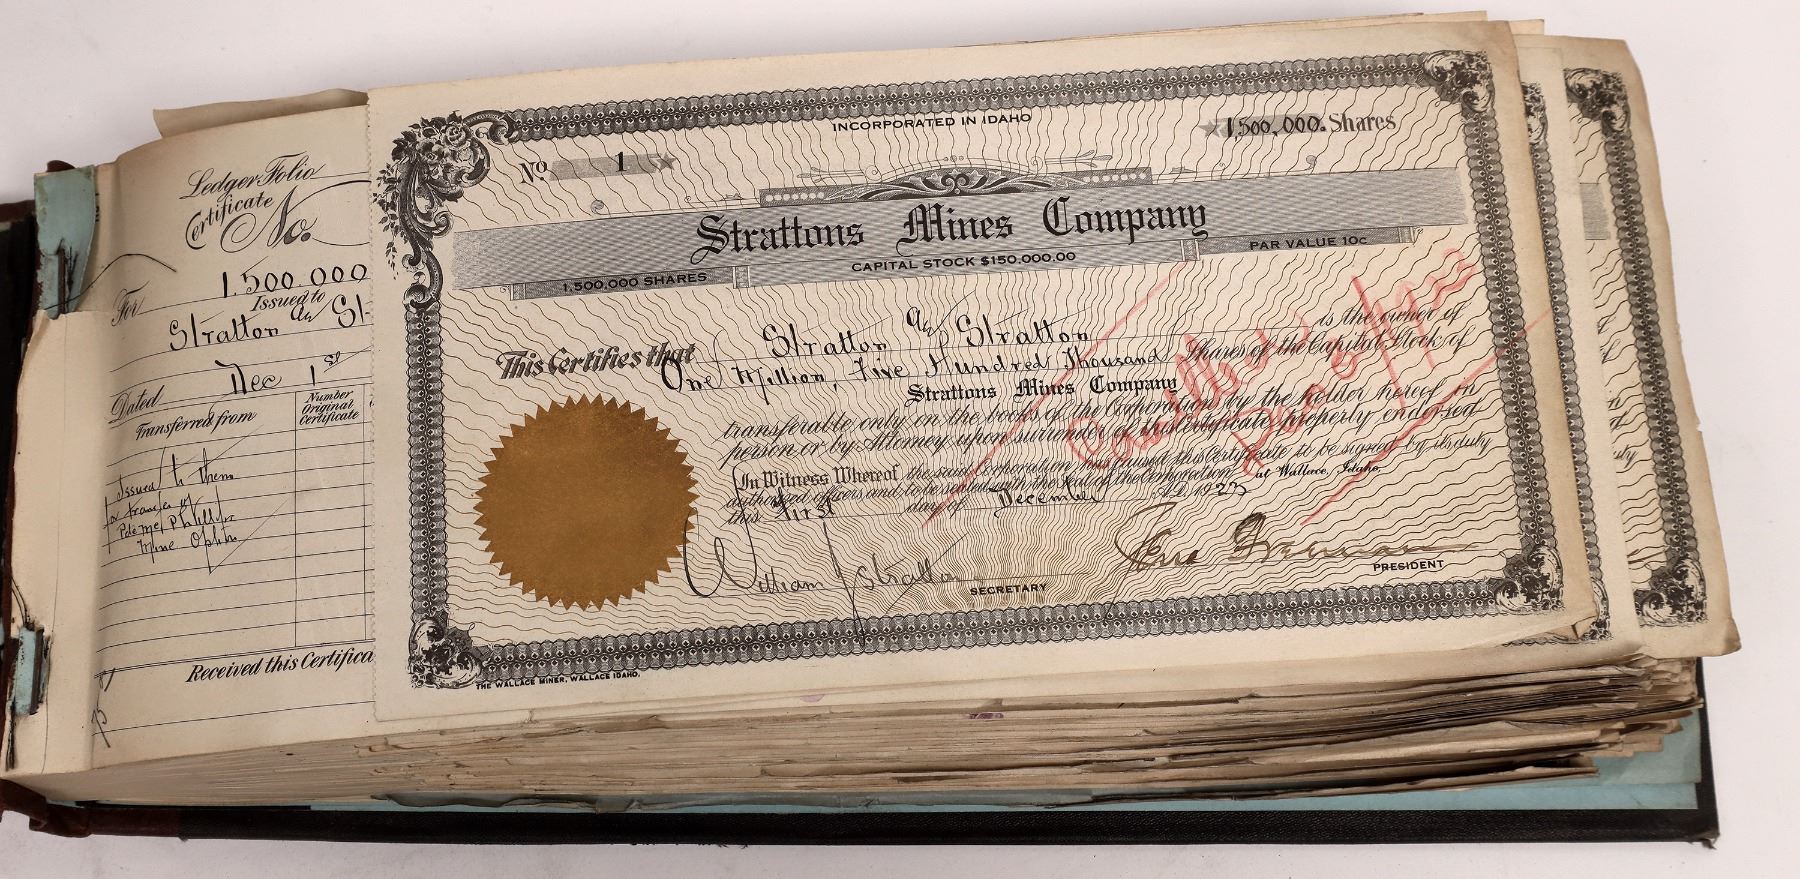 Ledger Folio
Certificate No.
For 1,500 000
Issued to
Stratton an St
Dated Dec 1st
Transferred from
Number Original Certificate
Issued to them
for transfer of
Mine Option
Received this Certifica
INCORPORATED IN IDAHO
No. 1
1,500,000. Shares
Strattons Mines Company
1,500,000 SHARES
CAPITAL STOCK $150,000.00
PAR VALUE 10c
This Certifies that Stratton an Stratton is the owner of
One Million, Five Hundred Thousand Shares of the Capital Stock of
Strattons Mines Company
transferable only on the books of the Corporation by the holder hereof in
person or by Attorney upon surrender of this Certificate properly endorsed
In Witness Whereof the said Corporation has caused this Certificate to be signed by its duly
authorized officers and to be sealed with the Seal of the Corporation at Wallace, Idaho,
this first day of December A.D. 1923
William J Stratton
SECRETARY
PRESIDENT
THE WALLACE MINER, WALLACE IDAHO.